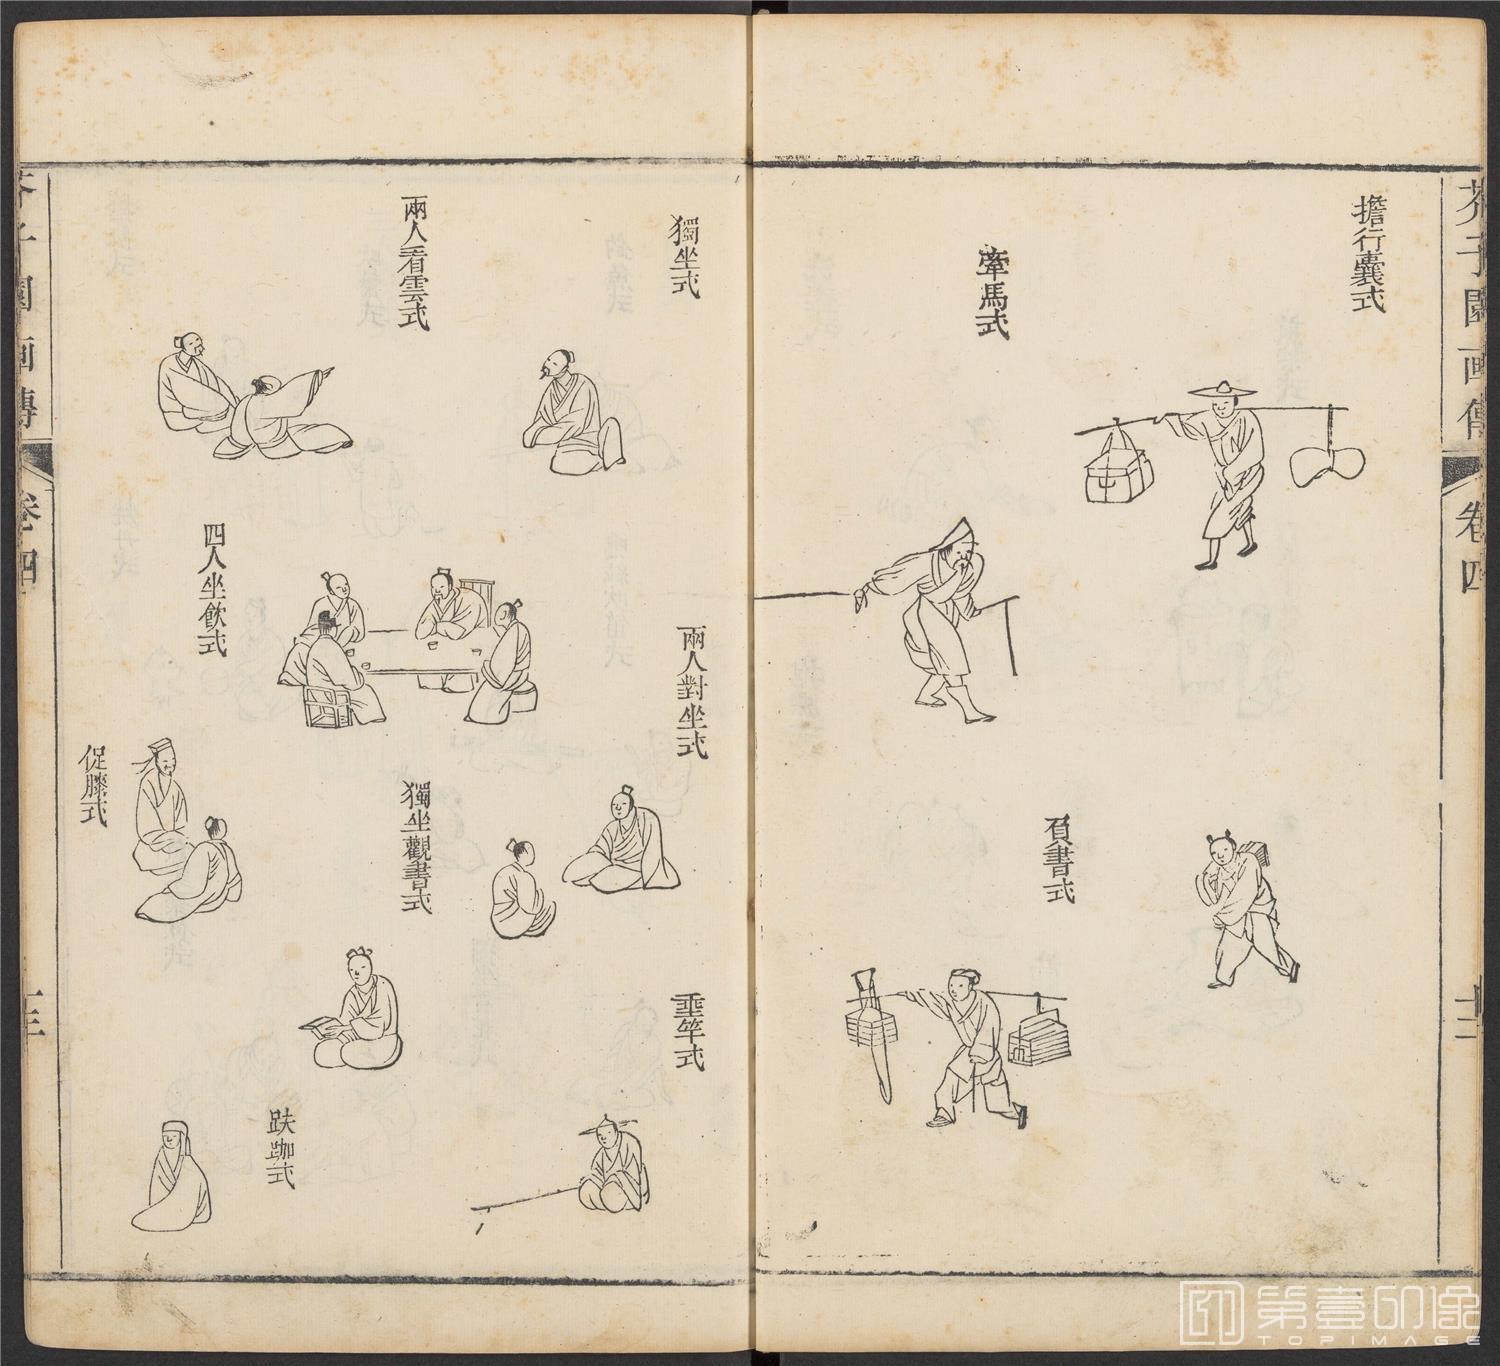 芥子園画傳
卷四
十二
擔行囊式
牽馬式
負書式
獨坐式
兩人看雲式
兩人對坐式
四人坐飲式
獨坐觀書式
促膝式
垂竿式
趺跏式
芥子園画傳
卷四
十三
第壹印像
TOPIMAGE